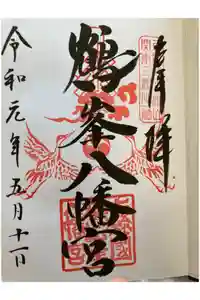 奉拝
鶴峯八幡宮
令和元年五月十一日